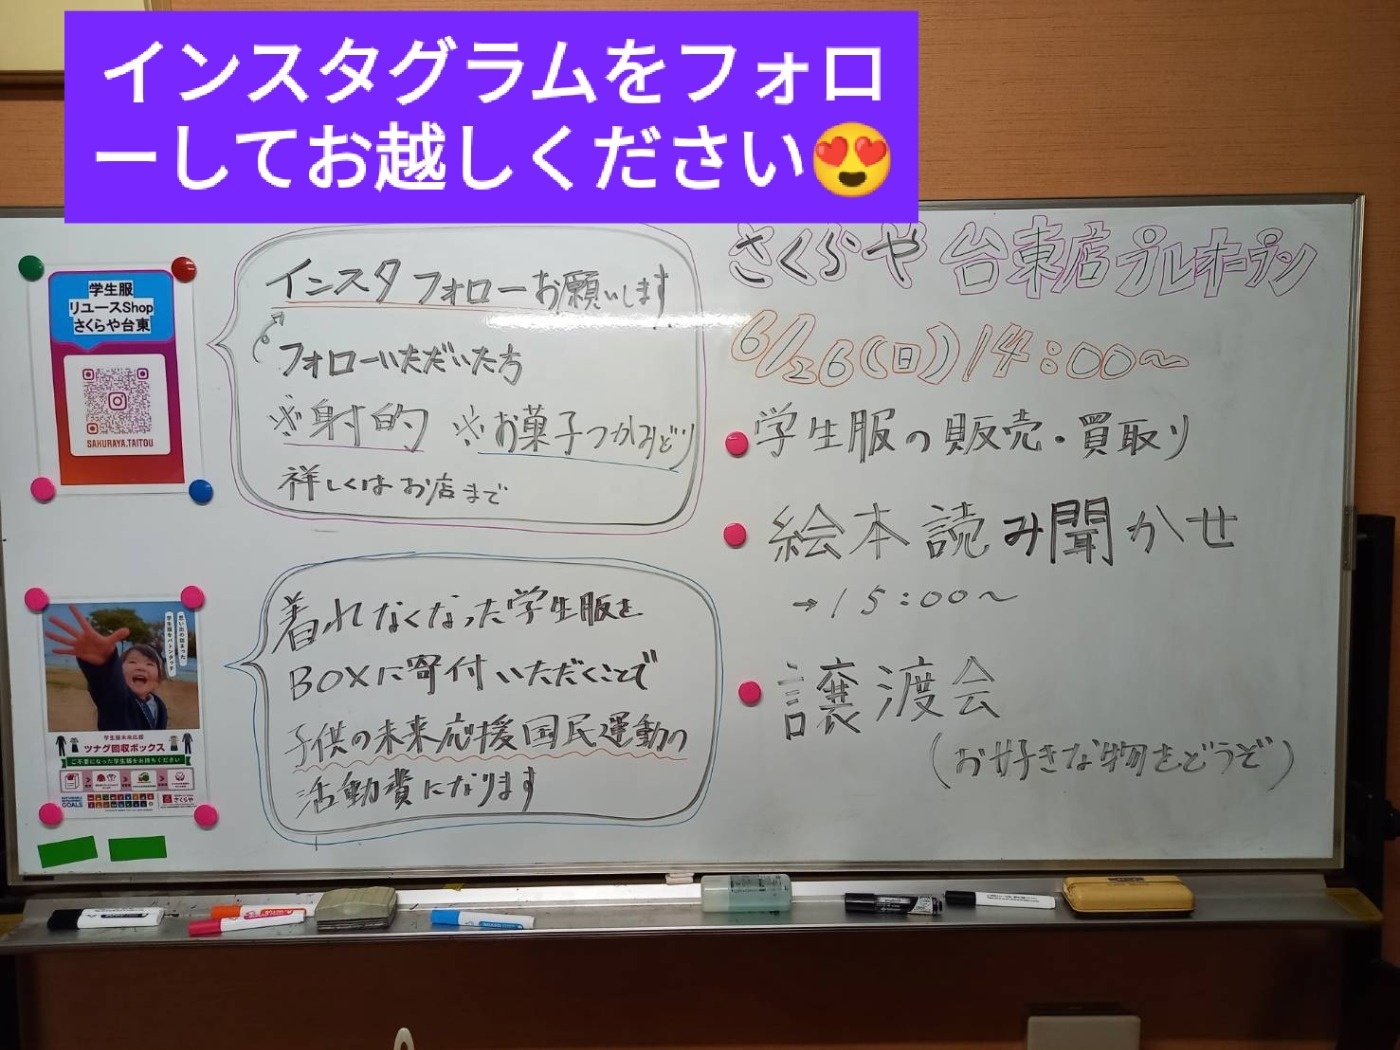 インスタグラムをフォロ
ーしてお越しください😍
学生服
リユースShop
さくらや台東
SAKURAYA.TAITOU
インスタフォローお願いします
フォローいただいた方
※射的 ※お菓子つかみどり
詳しくはお店まで
思い出の詰まった
学生服をバトンタッチ
ツナグ回収ボックス
ご不要になった学生服をお持ちください
さくらや
着れなくなった学生服を
BOXに寄付いただくことで
子供の未来応援国民運動の
活動費になります
さくらや 台東店プレオープン
6/26(日)14:00〜
学生服の販売・買取り
絵本読み聞かせ
→15:00〜
譲渡会
(お好きな物をどうぞ)